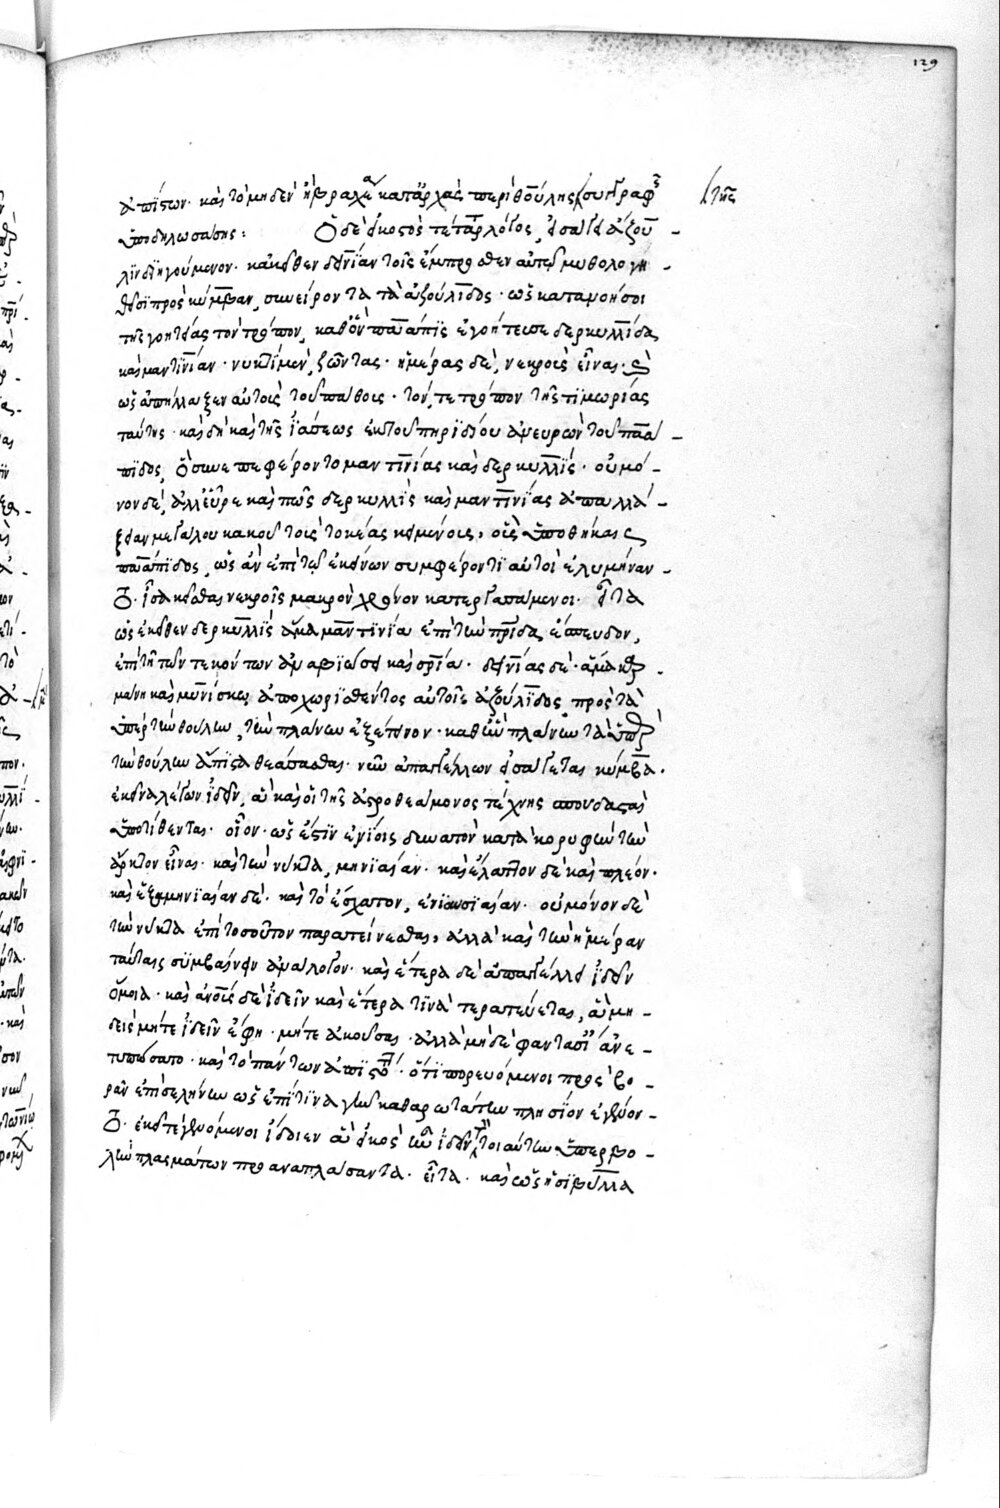 129
ἀπίστων· καὶ τὸ μηδὲν ἢ βραχέα κατ' ἀρχὰς περὶ θούλης συγγραφῆς
τῆς
ὑποδηλωσάσης: Ὁ δὲ εἰκοστὸς τέταρτος λόγος, εἰσάγει ἀζου-
λιν διηγούμενον· κἀκεῖθεν δεινίαν τοῖς ἔμπροσθεν αὐτῷ μυθολογη-
θεῖσι πρὸς κύμβαν, συνείροντα τὰ ἀζούλιδος· ὡς καταφωράσοι
τῆς γοητείας τὸν τρόπον, καθ' ὃν παάπις ἐγοήτευσε δερκυλλίδα
καὶ μαντινίαν· νυκτὶ μὲν, ζῶντας· ἡμέρας δὲ, νεκροὺς εἶναι· καὶ
ὡς ἀπήλλαξεν αὐτοὺς τοῦ πάθους· τόν, τε τρόπον τῆς τιμωρίας
ταύτης· καὶ δὴ καὶ τῆς ἰάσεως ἐκ τοῦ πηριδίου ἀνευρὼν τοῦ παα-
πιδος, ὃ συνεπεφέροντο μαντινίας καὶ δερκυλλίς· οὐ μό-
νον δὲ, ἀλλ' εὗρε καὶ πῶς δερκυλλὶς καὶ μαντινίας ἀπαλλά-
ξειαν μεγάλου κακοῦ τοὺς τοκέας κειμένους, οὓς ὑποθήκαις
παάπιδος, ὡς ἂν ἐπὶ τῷ ἐκείνων συμφέροντι αὐτοὶ ἐλυμήναν-
το· ἴσα κεῖσθαι νεκροῖς μακρὸν χρόνον κατεργασάμενοι· εἶτα
ὡς ἐκεῖθεν δερκυλλὶς ἅμα μαντινίᾳ ἐπὶ τὴν πατρίδα ἔσπευδον,
ἐπὶ τῇ τῶν τεκόντων ἀναβιώσει καὶ σωτηρίᾳ· δεινίας δὲ· ἅμα καρ-
μάνῃ καὶ μηνίσκῳ ἀποχωρισθέντος αὐτοῖς ἀζούλιδος πρὸς τὰ
ὑπὲρ τὴν θούλην, τὴν πλάνην ἐξέτεινον· καθ' ἣν πλάνην τὰ ὑπὲρ
τὴν θούλην ἄπιστα θεάσασθαι· νῦν ἀπαγγέλλων εἰσάγεται κύμβᾳ·
ἐκεῖνα λέγων ἰδεῖν, ἃ καὶ οἱ τῆς ἀστροθεάμονος τέχνης σπουδασταὶ
ὑποτίθενται· οἷον· ὡς ἔστιν ἐνίοις δυνατὸν κατὰ κορυφὴν τὴν
ἄρκτον εἶναι· καὶ τὴν νύκτα, μηνιαίαν· καὶ ἔλαττον δὲ καὶ πλέον·
καὶ ἑξαμηνιαίαν δὲ· καὶ τὸ ἔσχατον, ἐνιαυσιαίαν· οὐ μόνον δὲ
τὴν νύκτα ἐπὶ τοσοῦτον παρατείνεσθαι, ἀλλὰ καὶ τὴν ἡμέραν
ταύταις συμβαίνειν ἀνάλογον· καὶ ἕτερα δὲ ἀπαγγέλλει ἰδεῖν
ὅμοια· καὶ ἀνοὺς δὲ ἰδεῖν καὶ ἕτερά τινα τερατεύεται, ἃ μη-
δεὶς μήτε ἰδεῖν ἔφη· μήτε ἀκοῦσαι· ἀλλὰ μηδὲ φαντασίαις ἀνε-
τυπώσατο· καὶ τὸ πάντων ἀπιστότατον· ὅτι πορευόμενοι πρὸς βο-
ρᾶν ἐπὶ σελήνην ὡς ἐπί τινα γῆν καθαρωτάτην πλησίον ἐγένον-
το· ἐκεῖ τε γενόμενοι ἴδοιεν ἃ εἰκὸς ἦν ἰδεῖν τὸν τοιαύτην ὑπερβο-
λὴν πλασμάτων προαναπλάσαντα· εἶτα· καὶ ὡς ἡ σίβυλλα